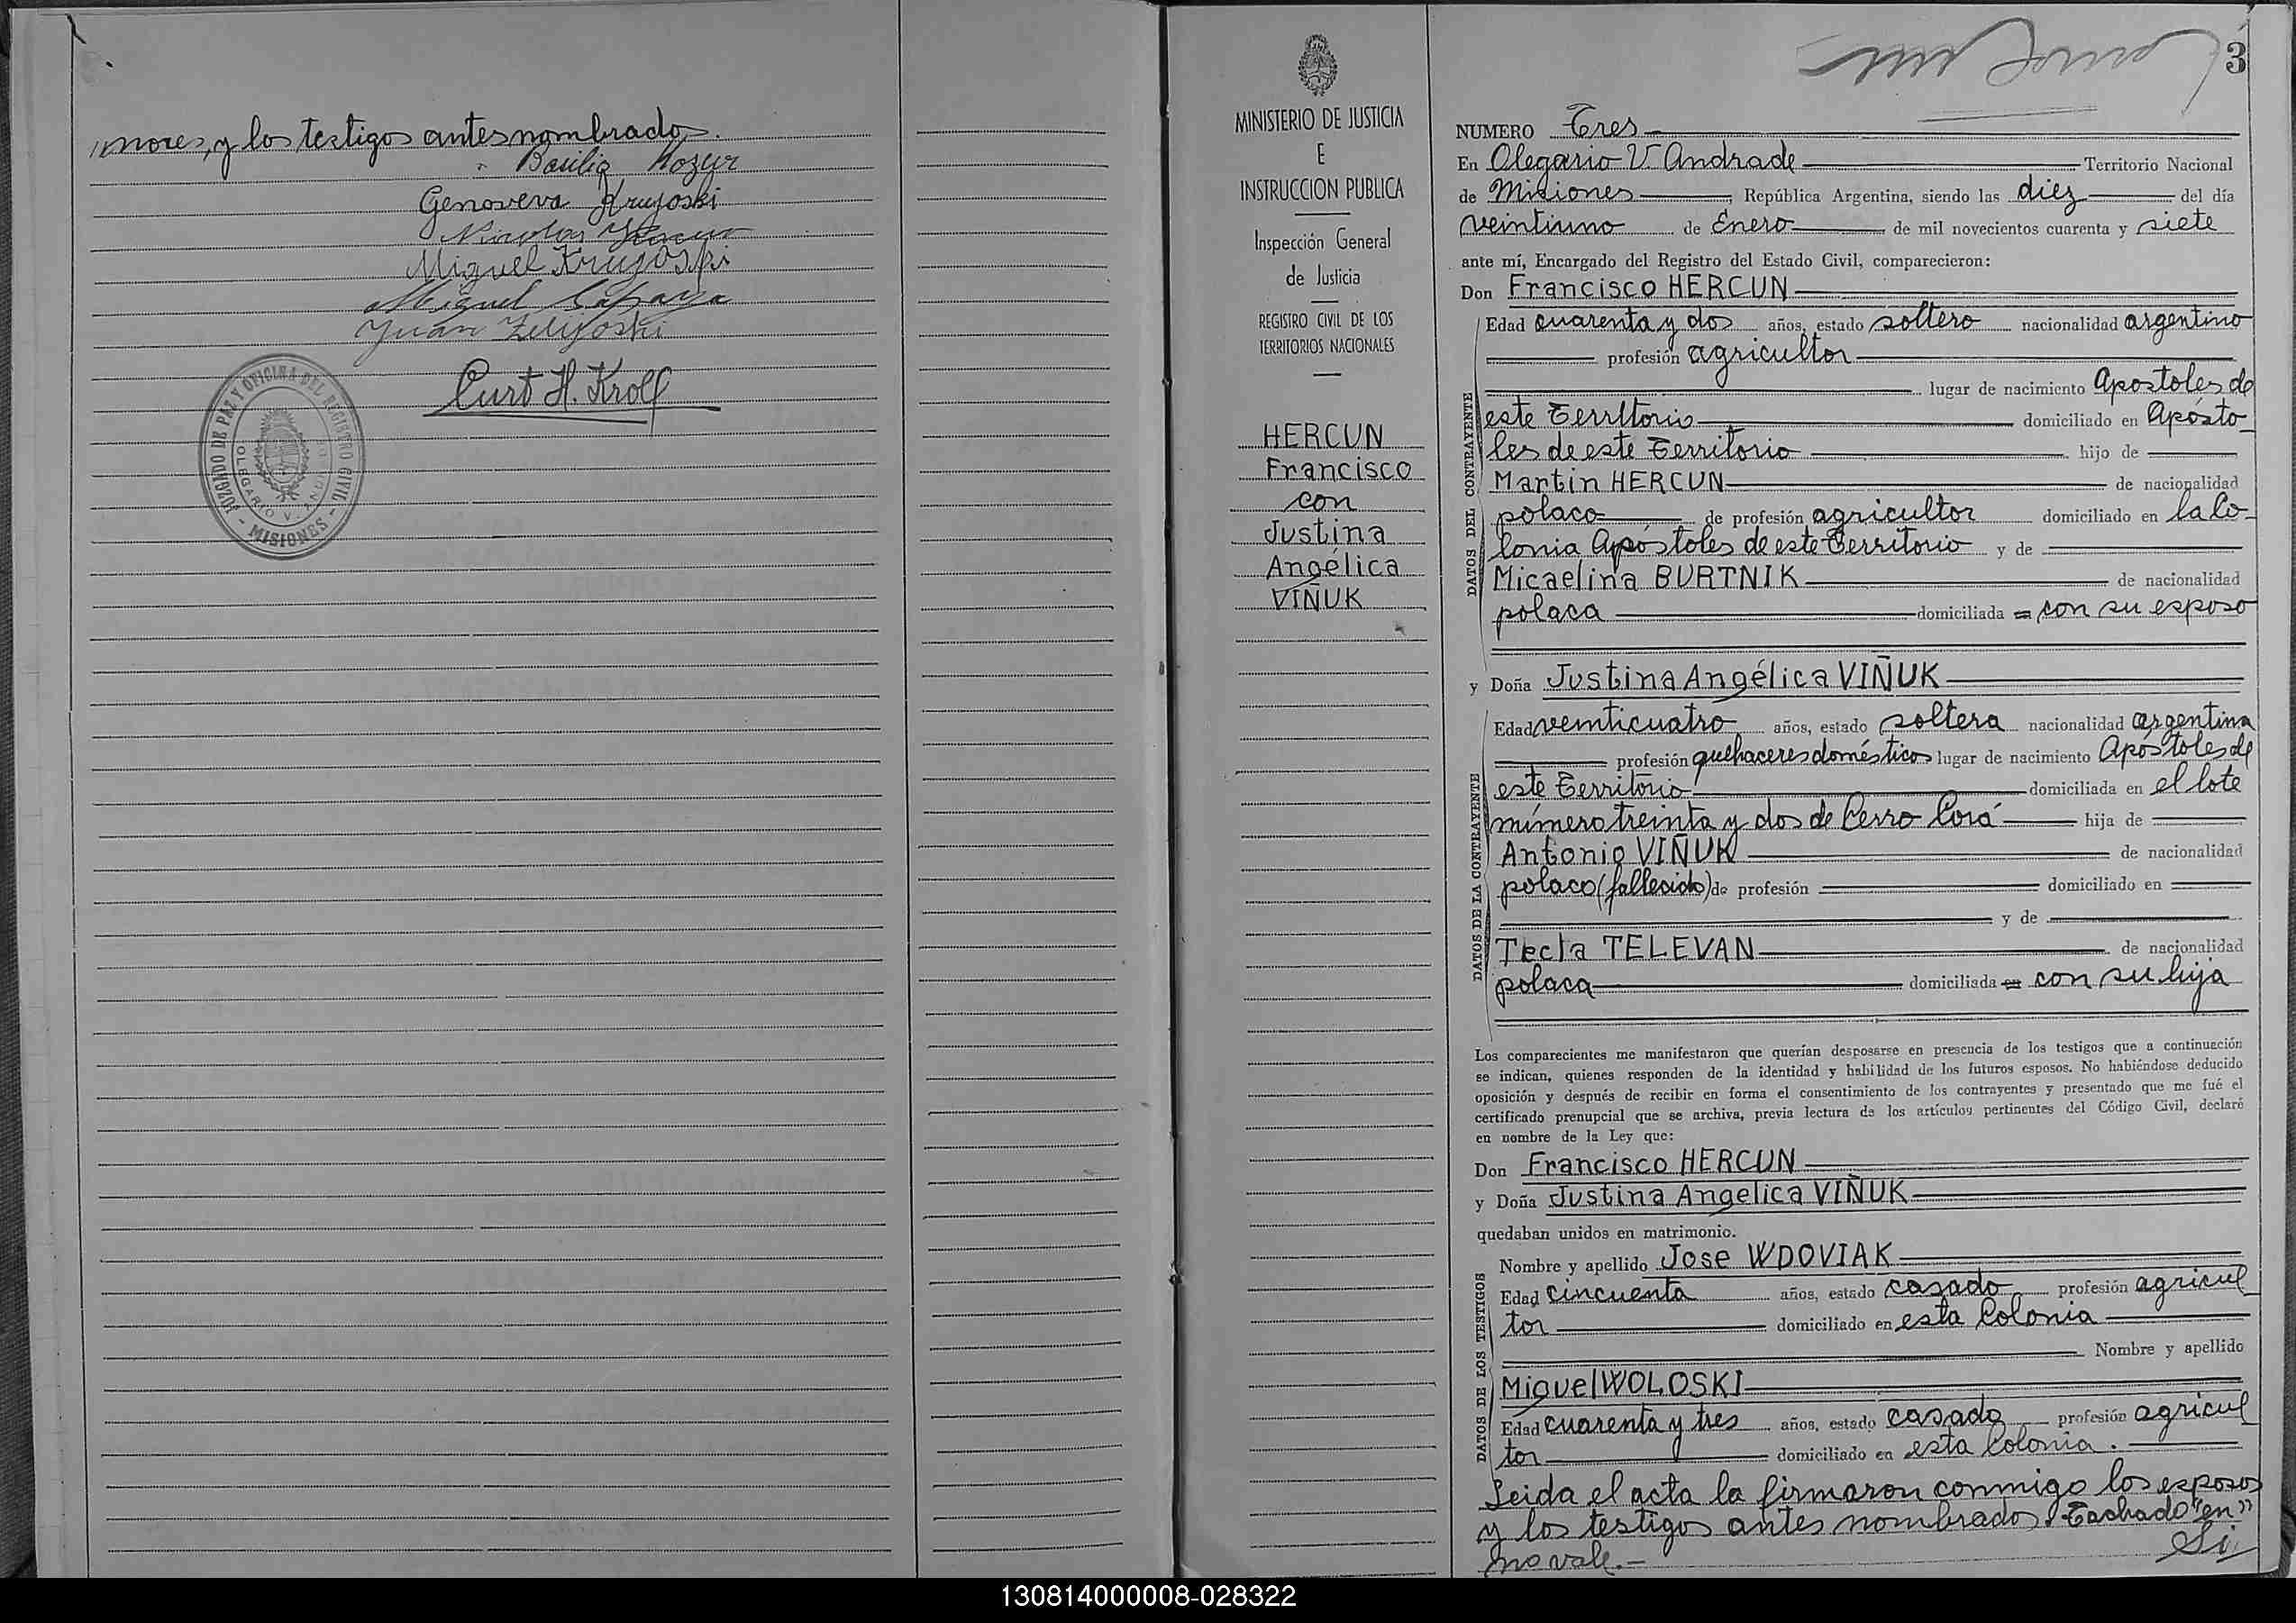 nores, y los testigos antes nombrados.
Basilio Kozur
Genoveva Krujoski
Nicolas
Miguel Krujoski
Miguel
Juan
Curt H. Krolf
JUZGADO DE PAZ Y OFICINA DEL REGISTRO CIVIL
OLEGARIO V. ANDRADE
- MISIONES -
3
MINISTERIO DE JUSTICIA
E
INSTRUCCION PUBLICA
Inspección General
de Justicia
REGISTRO CIVIL DE LOS
TERRITORIOS NACIONALES
HERCUN
Francisco
con
Justina
Angélica
VIÑUK
NUMERO Tres
En Olegario V. Andrade Territorio Nacional
de Misiones, República Argentina, siendo las diez del día
veintiuno de Enero de mil novecientos cuarenta y siete
ante mí, Encargado del Registro del Estado Civil, comparecieron:
Don Francisco HERCUN
DATOS DEL CONTRAYENTE
Edad cuarenta y dos años, estado soltero nacionalidad argentino
profesión agricultor
lugar de nacimiento Apostoles de
este Territorio domiciliado en Apósto-
les de este Territorio hijo de
Martin HERCUN de nacionalidad
polaco de profesión agricultor domiciliado en la Co-
lonia Apóstoles de este Territorio y de
Micaelina BURTNIK de nacionalidad
polaca domiciliada en con su esposo
y Doña Justina Angélica VIÑUK
DATOS DE LA CONTRAYENTE
Edad veinticuatro años, estado soltera nacionalidad argentina
profesión quehaceres domésticos lugar de nacimiento Apóstoles de
este Territorio domiciliada en el lote
número treinta y dos de Cerro Corá hija de
Antonio VIÑUK de nacionalidad
polaco (fallecido) de profesión domiciliado en
y de
Tecla TELEVAN de nacionalidad
polaca domiciliada en con su hija
Los comparecientes me manifestaron que querían desposarse en presencia de los testigos que a continuación
se indican, quienes responden de la identidad y habilidad de los futuros esposos. No habiéndose deducido
oposición y después de recibir en forma el consentimiento de los contrayentes y presentado que me fué el
certificado prenupcial que se archiva, previa lectura de los artículos pertinentes del Código Civil, declaré
en nombre de la Ley que:
Don Francisco HERCUN
y Doña Justina Angelica VIÑUK
quedaban unidos en matrimonio.
DATOS DE LOS TESTIGOS
Nombre y apellido Jose WDOVIAK
Edad cincuenta años, estado casado profesión agricul
tor domiciliado en esta Colonia
Nombre y apellido
Miguel WOLOSKI
Edad cuarenta y tres años, estado casado profesión agricul
tor domiciliado en esta Colonia.
Leida el acta la firmaron conmigo los esposos
y los testigos antes nombrados. Tachado "en"
no vale.- Si
130814000008-028322